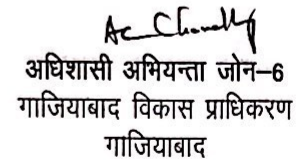 अधिशासी अभियन्ता जोन–6
गाजियाबाद विकास प्राधिकरण
गाजियाबाद